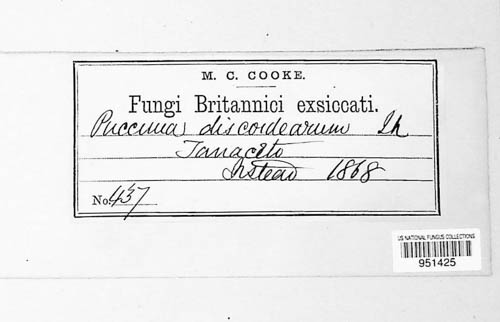 M. C. COOKE.
Fungi Britannici exsiccati.
Puccinia discoidearum Lk
Tanaceto
1868
No. 437
US NATIONAL FUNGUS COLLECTIONS
951425